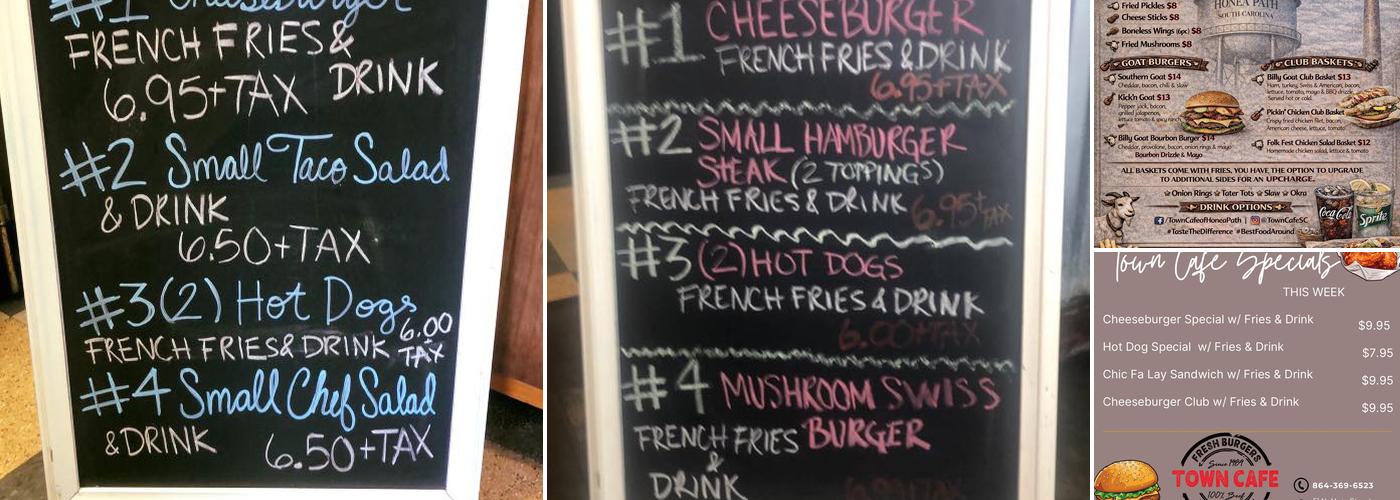 #1 Cheeseburger
FRENCH FRIES &
6.95+TAX DRINK
#2 Small Taco Salad
& DRINK
6.50+TAX
#3(2) Hot Dogs
6.00
FRENCH FRIES & DRINK TAX
#4 Small Chef Salad
& DRINK 6.50+TAX
#1 CHEESEBURGER
FRENCH FRIES & DRINK
6.95+TAX
#2 SMALL HAMBURGER
STEAK (2 TOPPINGS)
FRENCH FRIES & DRINK 6.95+TAX
#3 (2) HOT DOGS
FRENCH FRIES & DRINK
6.00+TAX
#4 MUSHROOM SWISS
FRENCH FRIES BURGER
&
DRINK
HONEA PATH
SOUTH CAROLINA
Fried Pickles $8
Cheese Sticks $8
Boneless Wings (6pc) $8
Fried Mushrooms $8
GOAT BURGERS
Southern Goat $14
Cheddar, bacon, chili & slaw
Kick'n Goat $13
Pepper jack, bacon,
grilled jalapenos,
lettuce tomato & spicy ranch
Billy Goat Bourbon Burger $14
Cheddar, provolone, bacon, onion rings & mayo
Bourbon Drizzle & Mayo
CLUB BASKETS
Billy Goat Club Basket $13
Ham, turkey, Swiss & American, bacon,
lettuce, tomato, mayo & BBQ drizzle.
Served hot or cold.
Pickin' Chicken Club Basket
Crispy fried chicken filet, bacon,
American cheese, lettuce, tomato
Folk Fest Chicken Salad Basket $12
Homemade chicken salad, lettuce & tomato
ALL BASKETS COME WITH FRIES, YOU HAVE THE OPTION TO UPGRADE
TO ADDITIONAL SIDES FOR AN UPCHARGE.
Onion Rings Tater Tots Slaw Okra
DRINK OPTIONS
/TownCafeofHoneaPath | @TownCafeSC
#TasteTheDifference #BestFoodAround
Coca-Cola
Sprite
Town Cafe Specials
THIS WEEK
Cheeseburger Special w/ Fries & Drink $9.95
Hot Dog Special w/ Fries & Drink $7.95
Chic Fa Lay Sandwich w/ Fries & Drink $9.95
Cheeseburger Club w/ Fries & Drink $9.95
FRESH BURGERS
Since 1989
TOWN CAFE
100% Beef
864-369-6523